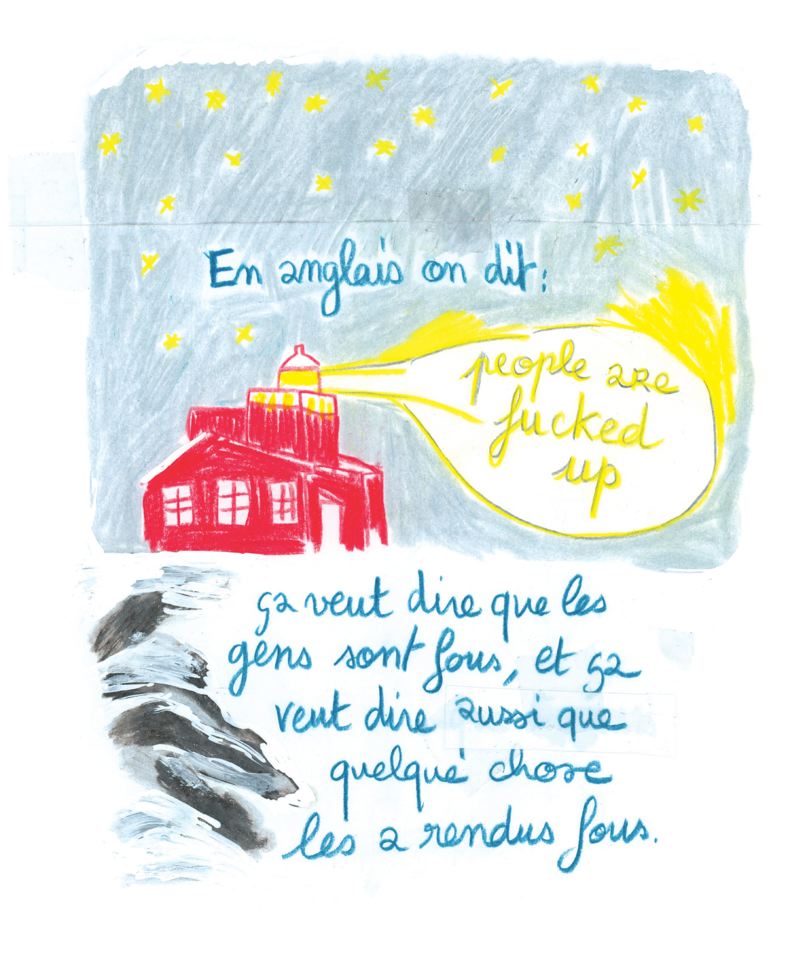 En anglais on dit:
people are
fucked
up
ça veut dire que les
gens sont fous, et ça
veut dire aussi que
quelque chose
les a rendus fous.